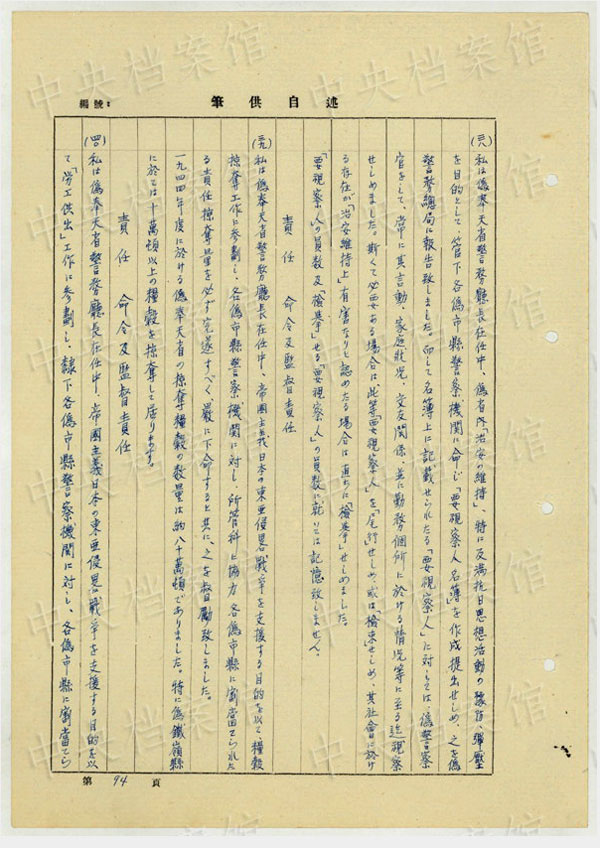 述自供筆
編號:
(三八)私は偽奉天省警務廳長在任中、偽省内「治安の維持」、特に反満抗日思想活動の豫防、弾壓
を目的として、管下各偽市縣警察機関に命じ「要視察人名簿」を作成提出せしめ、之を偽
警務總局に報告致しました。而して名簿上に記載せられたる「要視察人」に対しては、偽警察
官をして、常に其言動、家庭狀况、交友関係、並に勤務個所に於ける情況等に至る迄視察
せしめました。斯くて必要ある場合は、此等「要視察人」を「尾行」せしめ、或は「檢束」せしめ、其社會に於け
る存在が「治安維持上」有害なりと認めたる場合は直ちに「檢挙」せしめました。
「要視察人」の員数及「檢挙」せる「要視察人」の員数に就ては記憶致しません。
責任 命令及監督責任
(三九)私は偽奉天省警務廳長在任中、帝國主義日本の東亜侵畧戰爭を支援する目的を以て、糧穀
掠奪工作に参劃し、各偽市縣警察機関に対し、所管科に協力、各偽市縣に割當てられた
る責任掠奪量を必ず完遂すべく、嚴に下命すると共に、之を督勵致しました。
一九四四年度に於ける偽奉天省の掠奪糧穀の数量は約八十萬噸でありました。特に偽鐵嶺縣
に於ては十萬噸以上の糧穀を掠奪して居ります。
責任 命令及監督責任
(四〇)私は偽奉天省警務廳長在任中、帝國主義日本の東亜侵畧戰爭を支援する目的を以
て「労工供出」工作に参劃し、隸下各偽市縣警察機関に対し、各偽市縣に割當てら
第 94 頁
中央档案馆